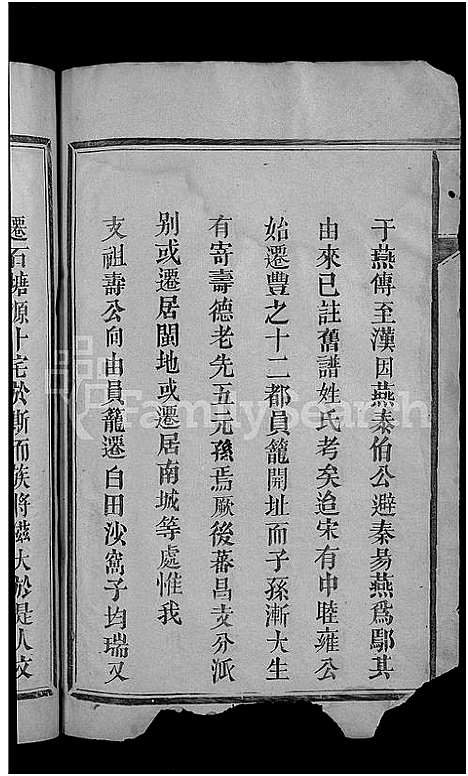 于燕傳至漢因燕泰伯公避秦易燕爲鄢其
由來已註舊譜姓氏考矣迨宋有中睦雍公
始遷豐之十二都員籠開址而子孫漸大生
有寄壽德老先五元孫焉厥後蕃昌支分派
別或遷居閩地或遷居南城等處惟我
支祖壽公向由員籠遷白田沙窩子均瑞又
遷石塘源卜宅於斯而族將蕃大於是人文
FamilySearch